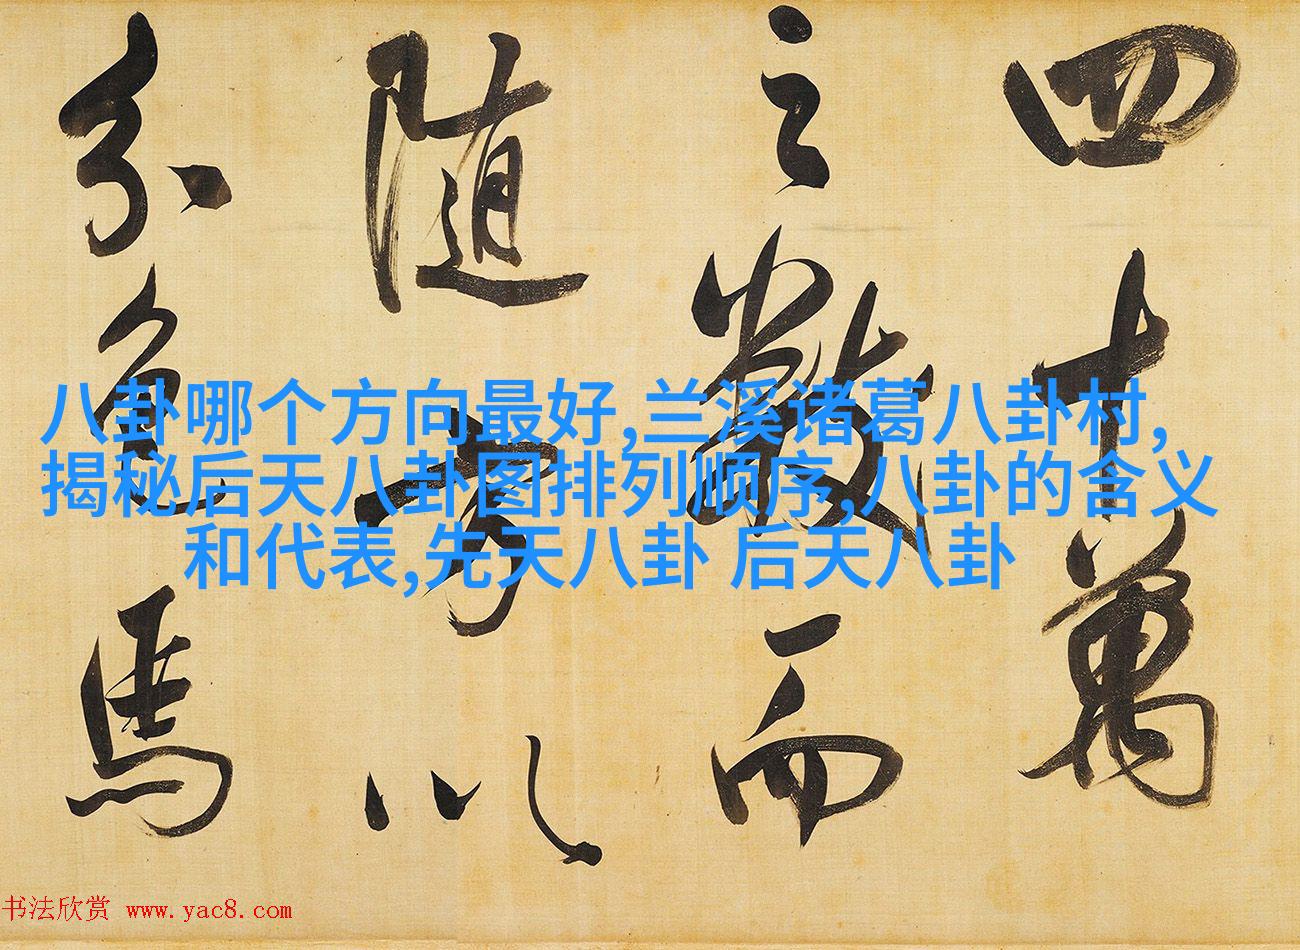 四十萬
之數而
随方以
分色馬
八卦哪个方向最好,兰溪诸葛八卦村,
揭秘后天八卦图排列顺序,八卦的含义
和代表,先天八卦 后天八卦
书法欣赏 www.yac8.com